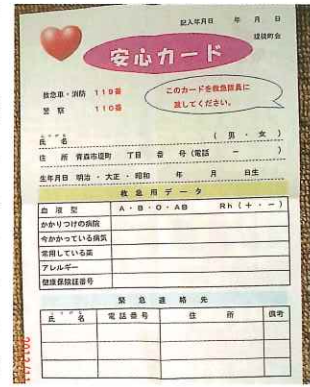 記入年月日　年　月　日
堤町町会
安心カード
救急車・消防　119番
警　察　110番
このカードを救急隊員に
渡してください。
ふりがな
氏　名　（　男　・　女　）
住　所　青森市堤町　丁目　番　号（電話　－　）
生年月日　明治　・　大正　・　昭和　年　月　日生
救急用データ
血液型　A・B・O・AB　Rh（＋・－）
かかりつけの病院
今かかっている病気
常用している薬
アレルギー
健康保険証番号
緊急連絡先
ふりがな
氏　名　電話番号　住　所　備考